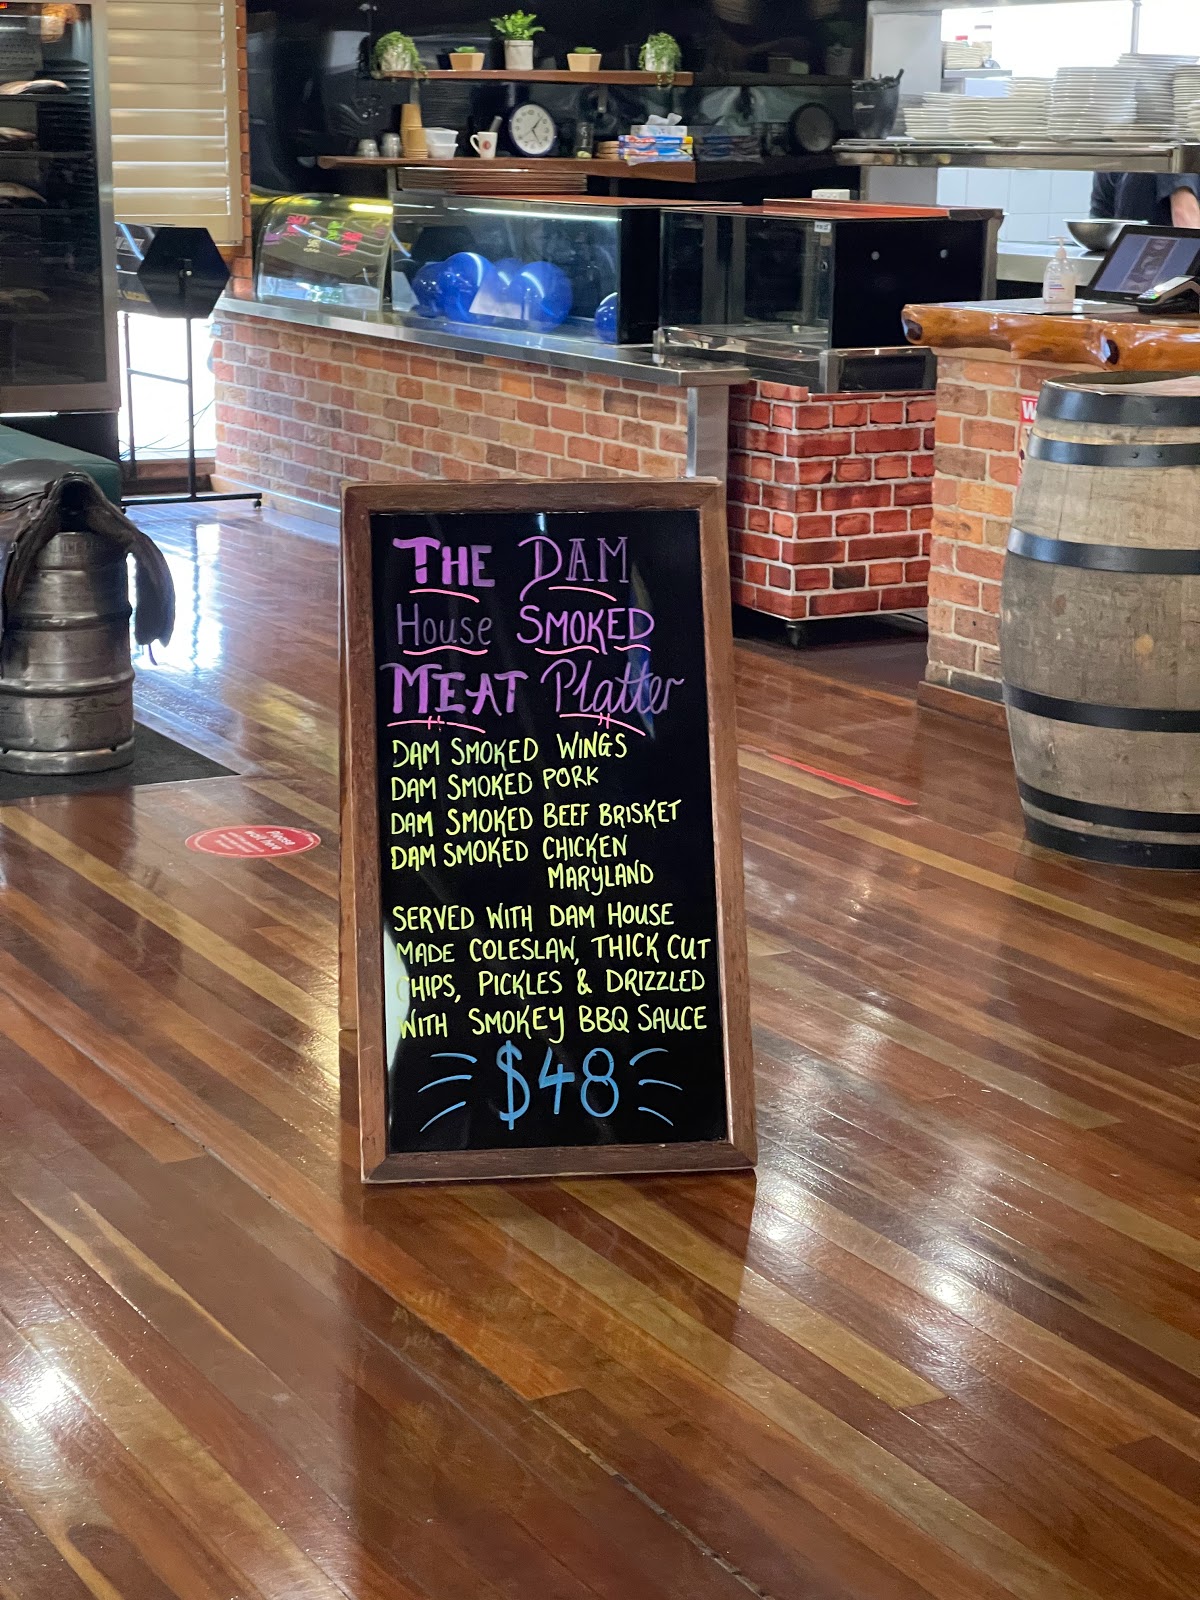 THE DAM
House SMOKED
MEAT Platter
DAM SMOKED WINGS
DAM SMOKED PORK
DAM SMOKED BEEF BRISKET
DAM SMOKED CHICKEN
MARYLAND
SERVED WITH DAM HOUSE
MADE COLESLAW, THICK CUT
CHIPS, PICKLES & DRIZZLED
WITH SMOKEY BBQ SAUCE
$48
Please
wait here